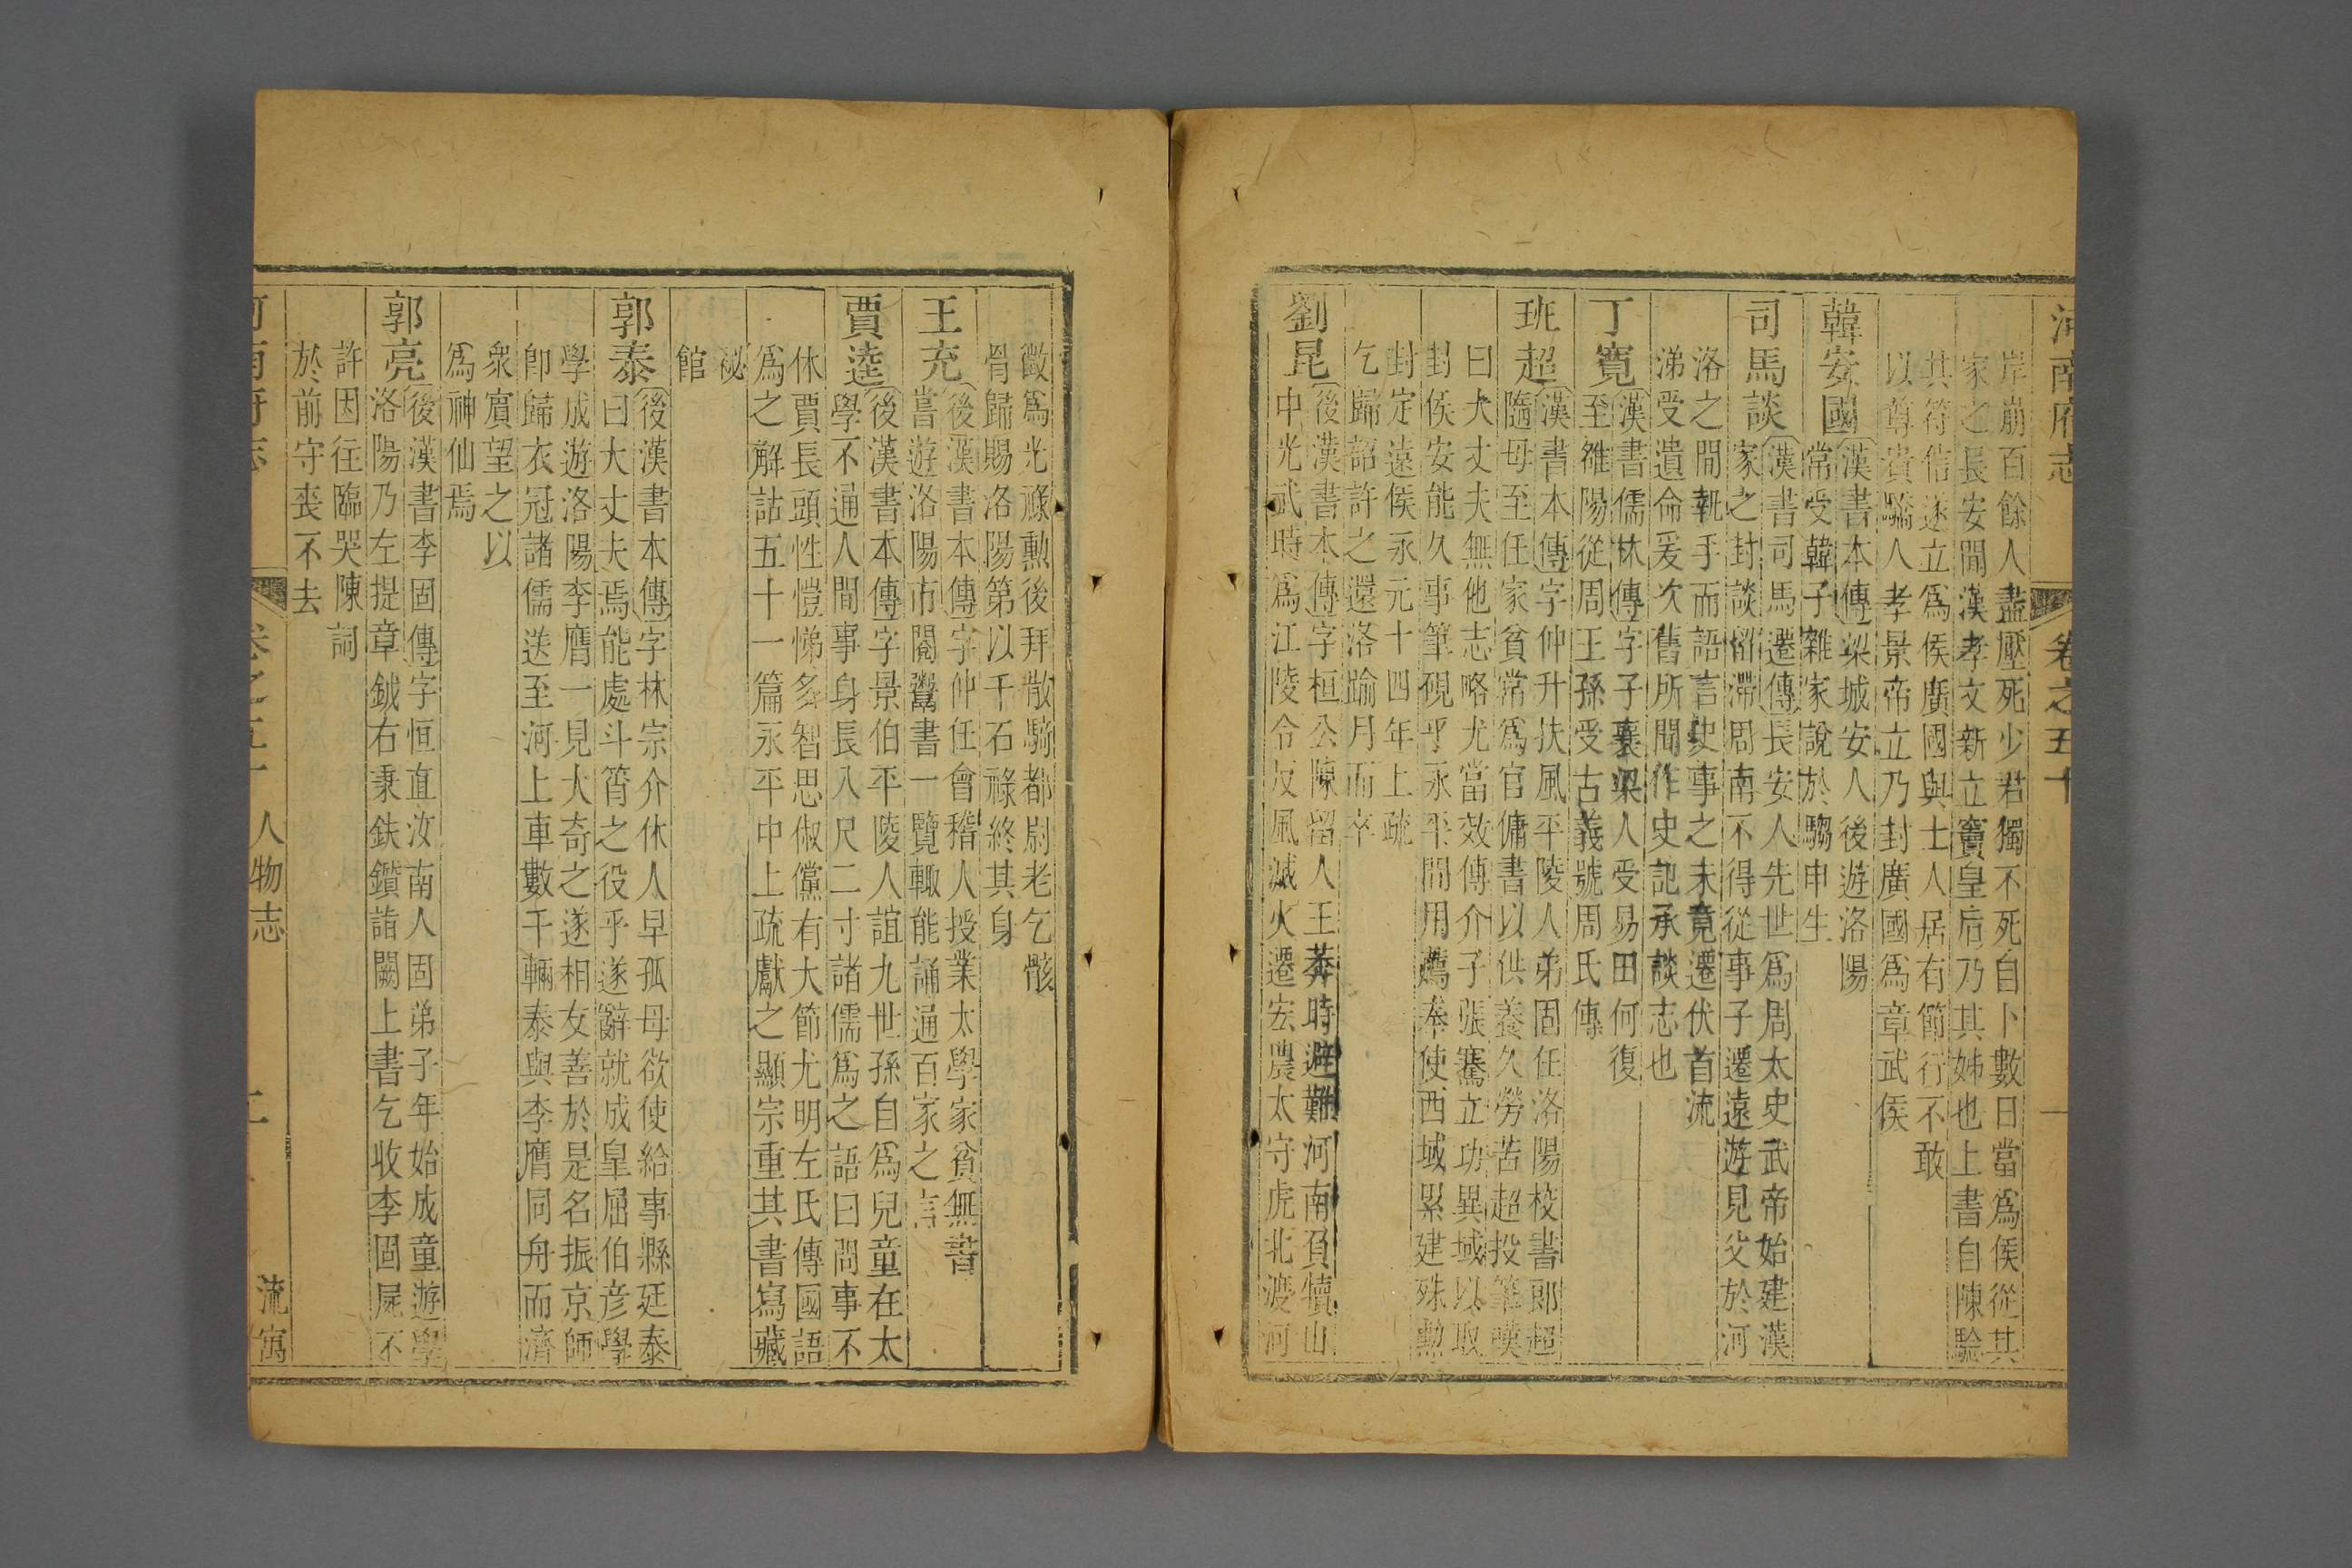 河南府志
卷之五十
岸崩百餘人盡壓死少君獨不死自卜數日當為侯從其
家之長安聞漢孝文新立竇皇后乃其姊也上書自陳驗
其符信遂立為侯廣國與士人居有節行不敢
以尊貴驕人孝景帝立乃封廣國為章武侯
韓安國
漢書本傳梁城安人後遊洛陽
常受韓子雜家說於騶申生
司馬談
漢書司馬遷傳長安人先世為周太史武帝始建漢
家之封談留滯周南不得從事子遷遠遊見父於河
洛之間執手而語言史事之未竟遷伏首流
涕受遺命爰次舊所聞作史記承談志也
丁寬
漢書儒林傳字子襄梁人受易田何復
至雒陽從周王孫受古義號周氏傳
班超
漢書本傳字仲升扶風平陵人弟固任洛陽校書郎超
隨母至任家貧常為官傭書以供養久勞苦超投筆嘆
曰大丈夫無他志略尤當效傅介子張騫立功異域以取
封侯安能久事筆硯乎永平間用薦奉使西域累建殊勲
封定遠侯永元十四年上疏
乞歸詔許之還洛踰月而卒
劉昆
後漢書本傳字桓公陳留人王莽時避難河南負犢山
中光武時為江陵令反風滅火遷宏農太守虎北渡河
徵為光祿勲後拜散騎都尉老乞骸
骨歸賜洛陽第以千石祿終其身
王充
後漢書本傳字仲任會稽人授業太學家貧無書
嘗遊洛陽市閱鬻書一覽輒能誦通百家之言
賈逵
後漢書本傳字景伯平陵人誼九世孫自為兒童在太
學不通人間事身長八尺二寸諸儒為之語曰問事不
休賈長頭性愷悌多智思俶儻有大節尤明左氏傳國語
為之解詁五十一篇永平中上疏獻之顯宗重其書寫藏
祕
館
郭泰
後漢書本傳字林宗介休人早孤母欲使給事縣廷泰
曰大丈夫焉能處斗筲之役乎遂辭就成皐屈伯彦學
學成遊洛陽李膺一見大奇之遂相友善於是名振京師
卽歸衣冠諸儒送至河上車數千輛泰與李膺同舟而濟
衆賔望之以
為神仙焉
郭亮
後漢書李固傳字恒直汝南人固弟子年始成童遊學
洛陽乃左提章鉞右秉鈇鑕詣闕上書乞收李固屍不
許因往臨哭陳詞
於前守喪不去
河南府志
卷之五十 人物志
二
流寓